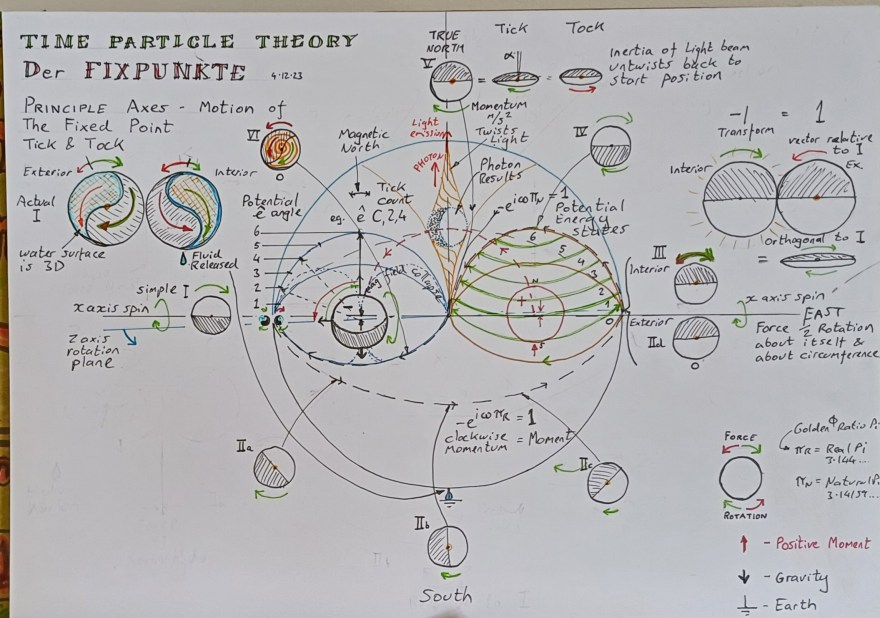 TIME PARTICLE THEORY
Der FIXPUNKTE 4·12·23
PRINCIPLE AXES - MOTION of
The Fixed Point
Tick & Tock
Exterior
Interior
Actual
I
water surface
is 3D
Fluid
Released
simple I
x axis spin
z axis
rotation
plane
VI
O
Magnetic
North
Potential
ê angle
eg. ê C,2,4
Tick
count
6
5
4
3
2
1
field collapse
TRUE
NORTH
V
Tick
Tock
α
=
Inertia of Light beam
untwists back to
start position
Momentum
m/s²
Twists
Light
Light
emission
PHOTON
Photon
Results
-e^iωπN = 1
Potential
Energy
states
6
5
4
3
2
1
0
N
S
IV
-1 = 1
Transform
vector relative
to I
Interior
Ex.
Orthogonal to I
=
III
Interior
Exterior
IId
O
x axis spin
EAST
Force ½ Rotation
about itself &
about circumference
-e^iωπR = 1
clockwise = Moment
Momentum
IIa
IIb
IIc
South
Golden Φ Ratio Pi
FORCE
πR = Real Pi
3.144...
πN = Natural Pi
3.14159...
ROTATION
↑ - Positive Moment
↓ - Gravity
⏚ - Earth